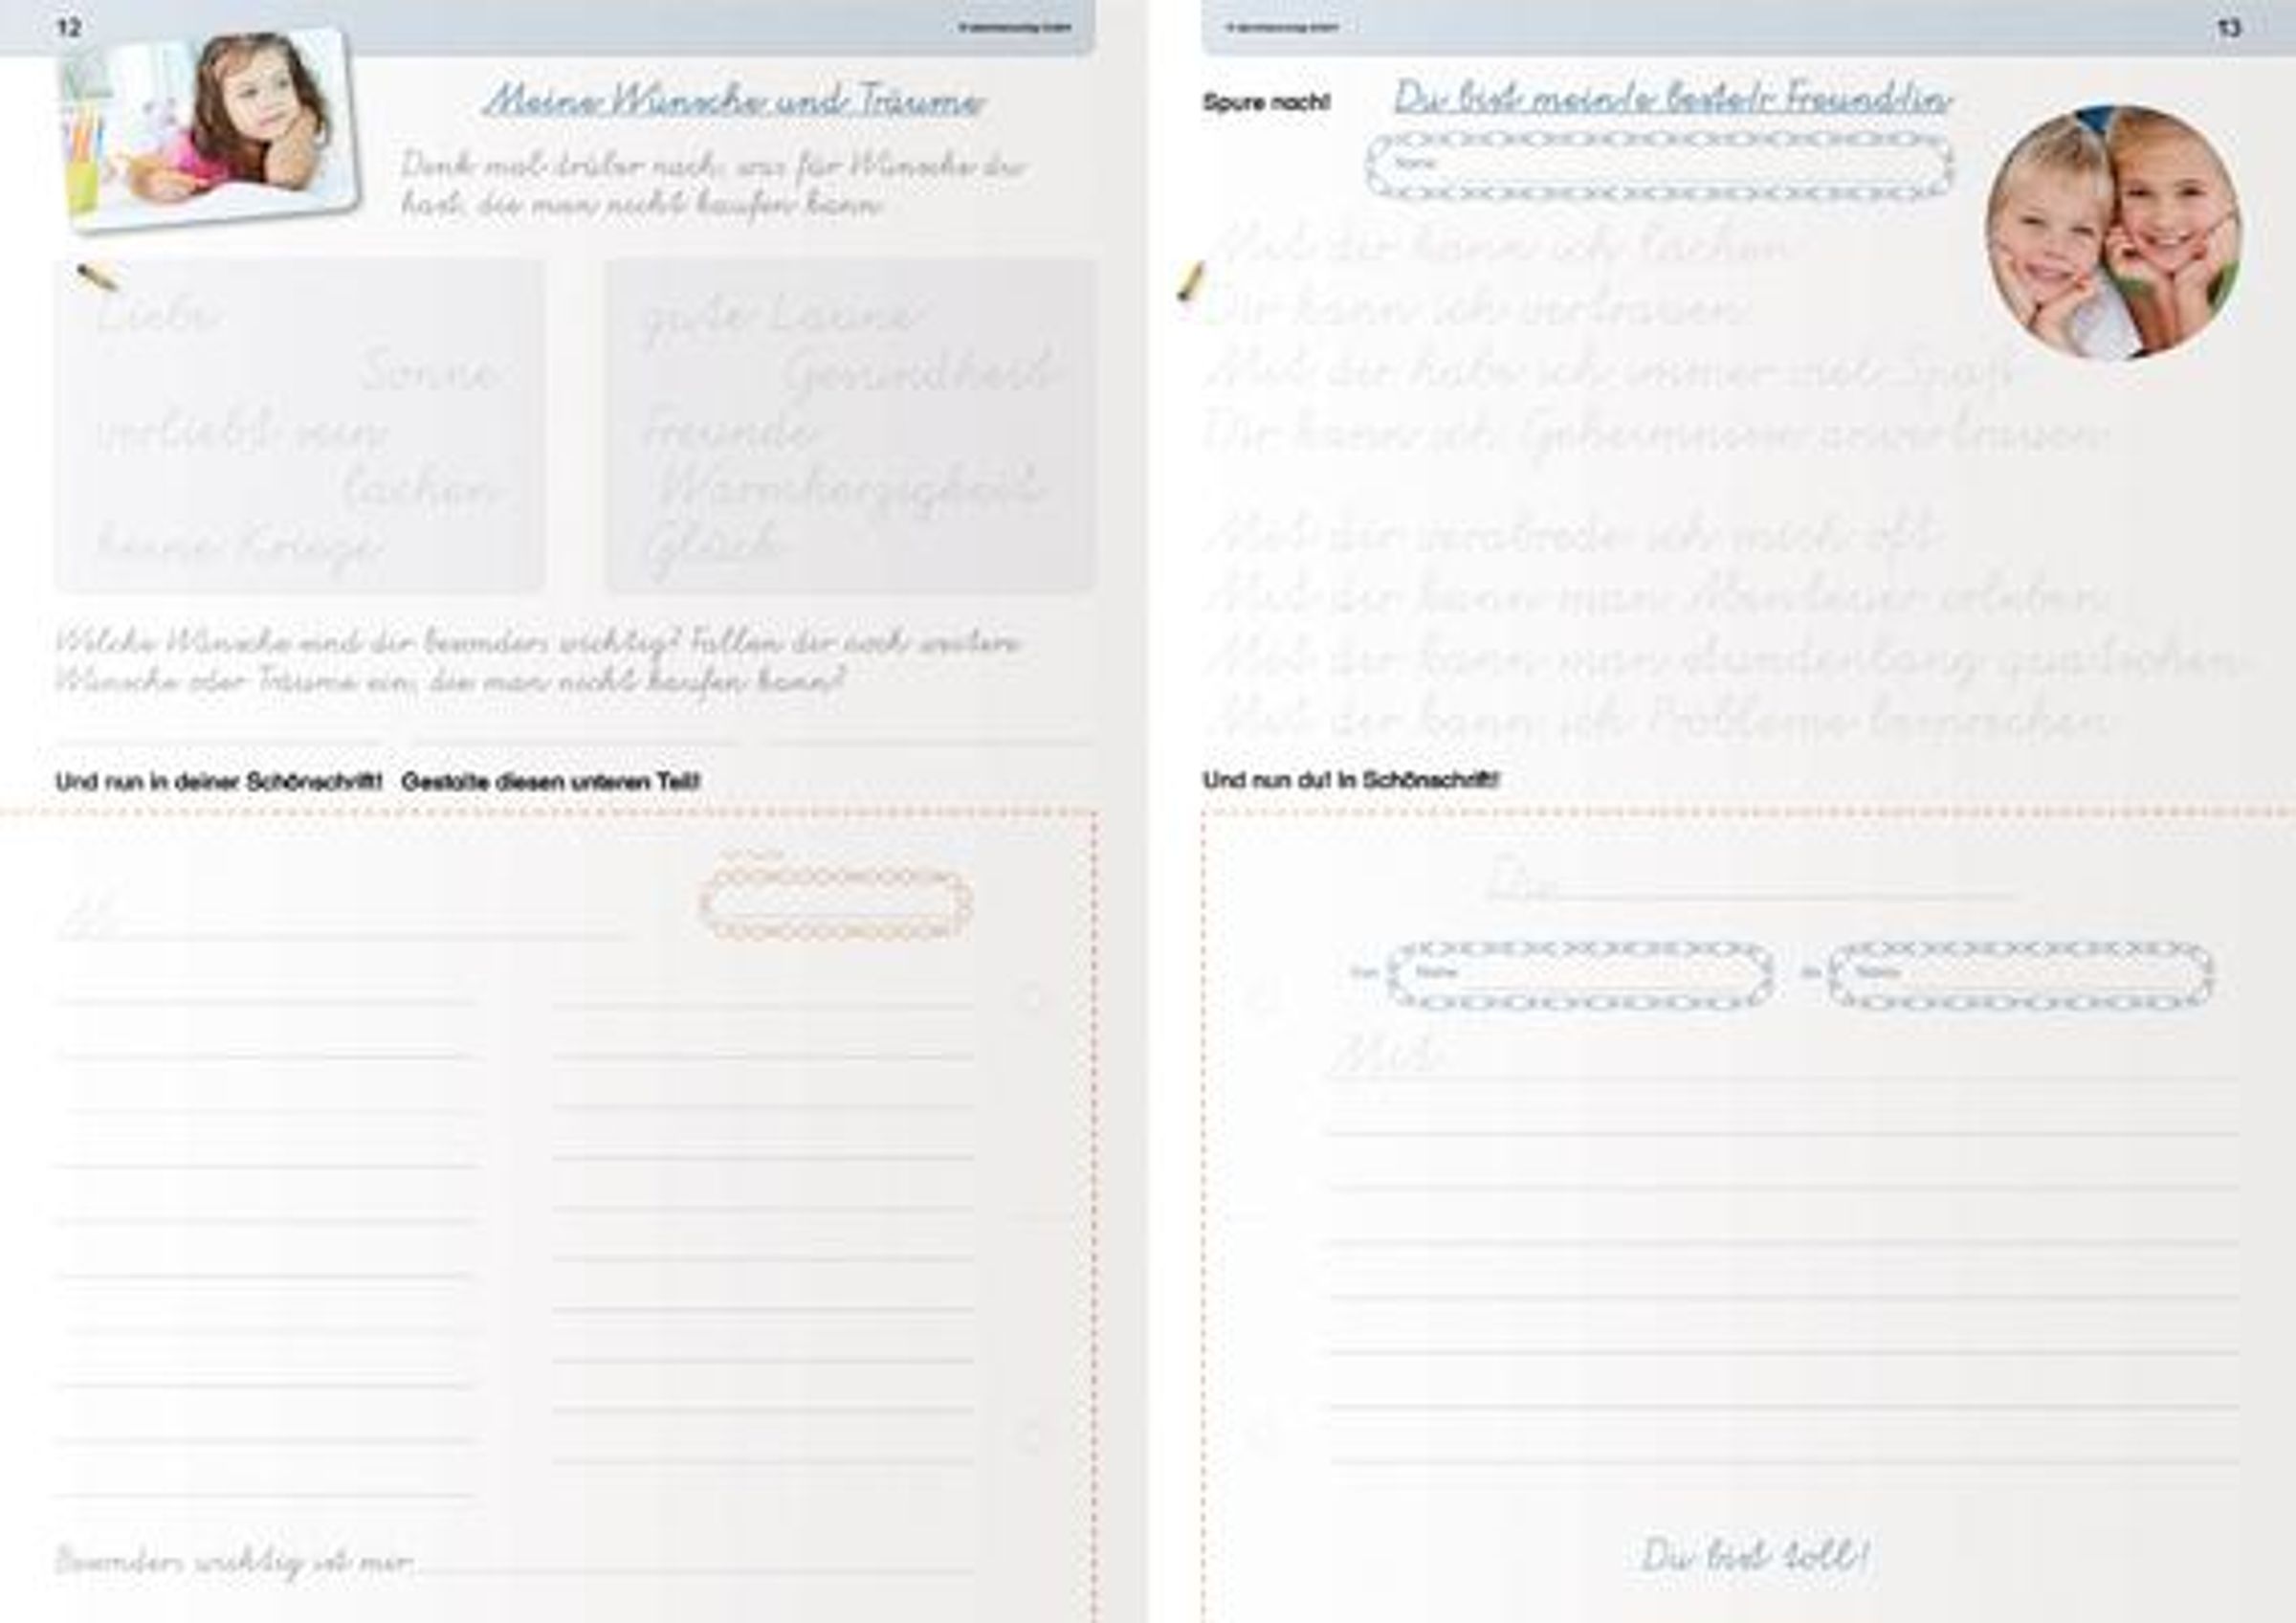 12
Meine Wünsche und Träume
Denk mal drüber nach, was für Wünsche du
hast, die man nicht kaufen kann.
Liebe
Sonne
verliebt sein
lachen
keine Kriege
gute Laune
Gesundheit
Freunde
Warmherzigkeit
Glück
Welche Wünsche sind dir besonders wichtig? Fallen dir noch weitere
Wünsche oder Träume ein, die man nicht kaufen kann?
Und nun in deiner Schönschrift! Gestalte diesen unteren Teil!
Besonders wichtig ist mir
13
Spure nach!
Du bist mein/e beste/r Freund/in
Name
Mit dir kann ich lachen
Dir kann ich vertrauen
Mit dir habe ich immer viel Spaß
Dir kann ich Geheimnisse anvertrauen
Mit dir verabrede ich mich oft
Mit dir kann man Abenteuer erleben
Mit dir kann man stundenlang quatschen
Mit dir kann ich Probleme besprechen
Und nun du! In Schönschrift!
Du
Name
Name
Mit
Du bist toll!